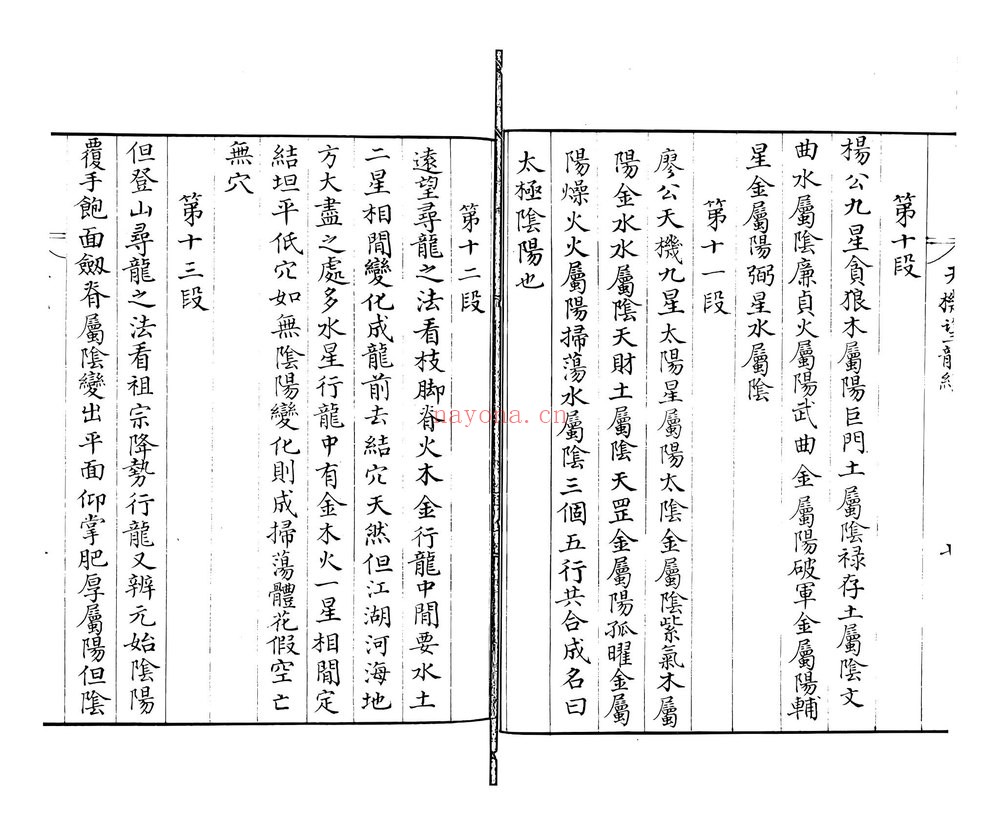 第十段
楊公九星貪狼木屬陽巨門土屬陰祿存土屬陰文
曲水屬陰廉貞火屬陽武曲金屬陽破軍金屬陽輔
星金屬陽弼星水屬陰
第十一段
廖公天機九星太陽星屬陽太陰金屬陰紫氣木屬
陽金水水屬陰天財土屬陰天罡金屬陽孤曜金屬
陽燥火火屬陽掃蕩水屬陰三個五行共合成名曰
太極陰陽也
第十二段
遠望尋龍之法看枝脚脊火木金行龍中間要水土
二星相間變化成龍前去結穴天然但江湖河海地
方大盡之處多水星行龍中有金木火一星相間定
結坦平低穴如無陰陽變化則成掃蕩體花假空亡
無穴
第十三段
但登山尋龍之法看祖宗降勢行龍又辨元始陰陽
覆手飽面劔脊屬陰變出平面仰掌肥厚屬陽但陰
nayona.cn